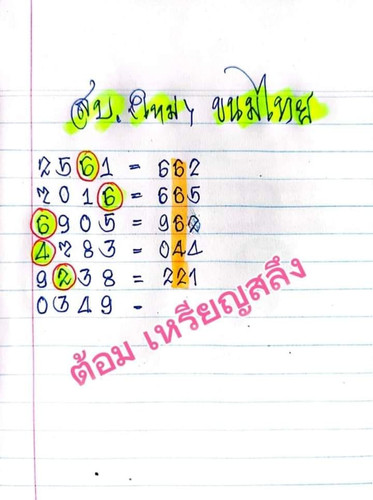 สบ. ใหม่ๆ ขนมไทย
2561 = 662
2016 = 665
6905 = 962
4283 = 044
9238 = 221
0349 -
ต้อม เหรียญสลึง